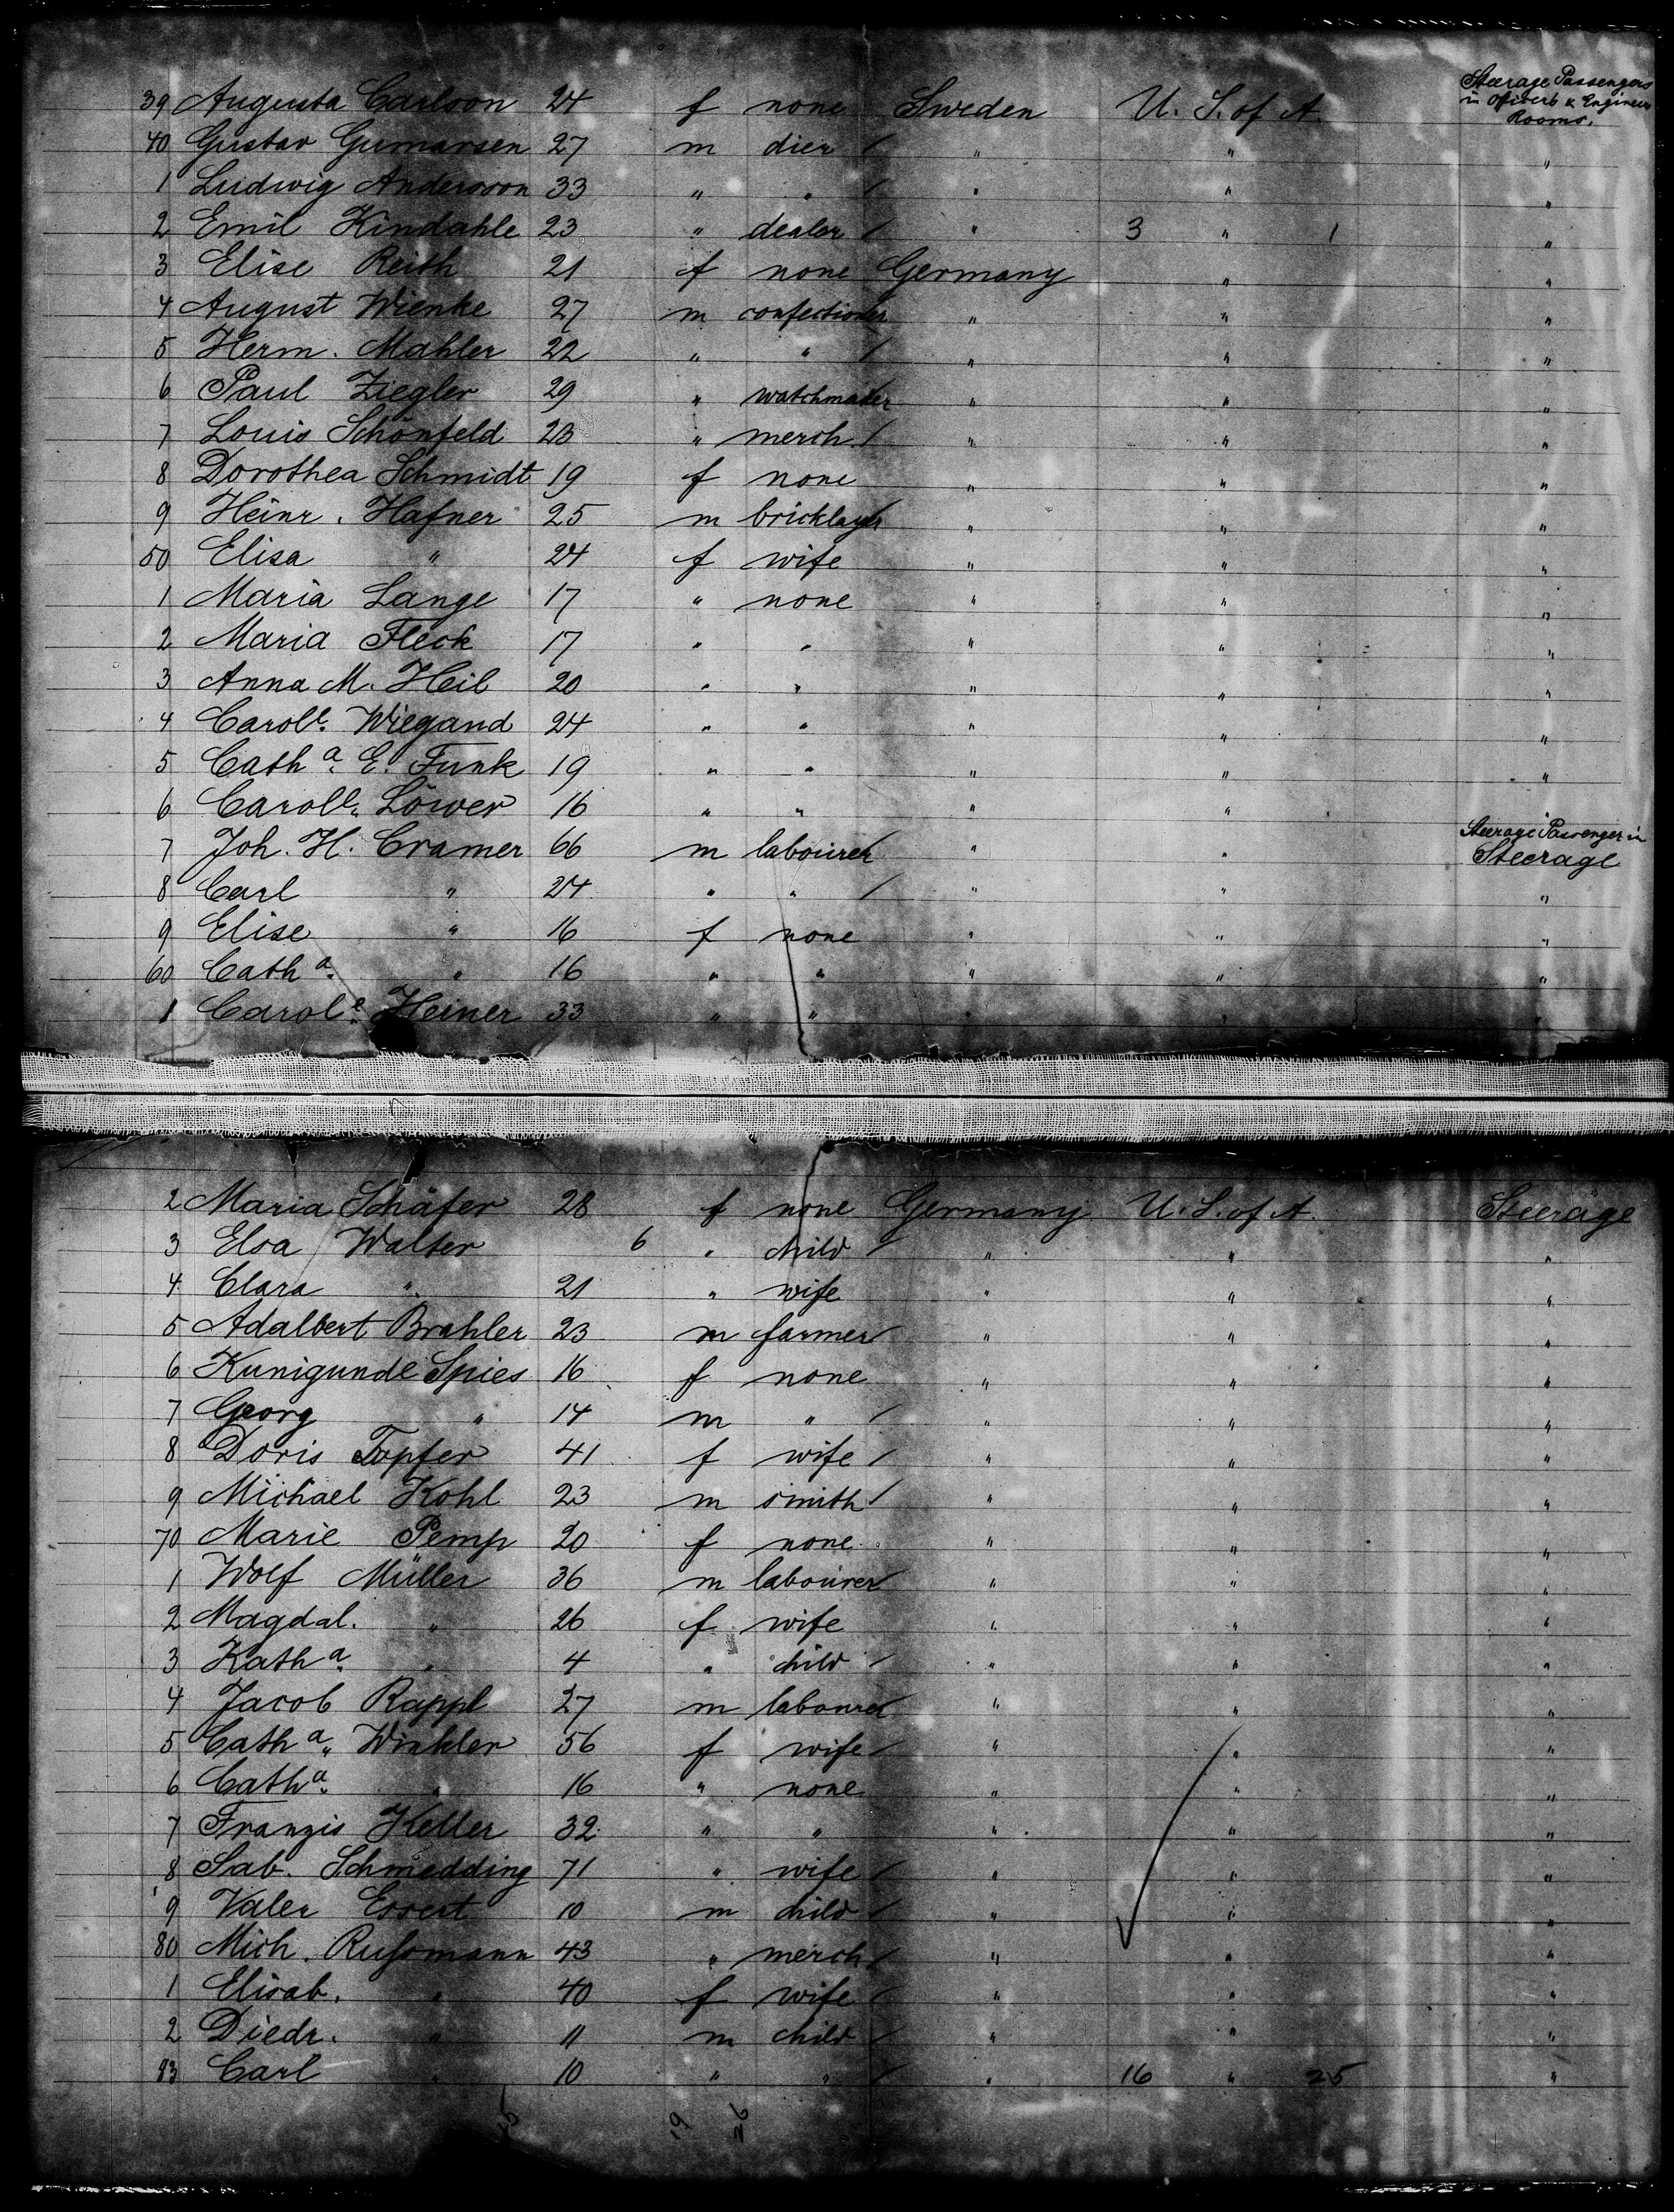 39 Augusta Carlson 24 f none Sweden U. S. of A. Steerage Passengers in Oficers & Engineer Rooms.
40 Gustav Gumarsen 27 m dier / " " "
1 Ludwig Andersson 33 " " / " " "
2 Emil Kindahle 23 " dealer / " 3 " 1 "
3 Elise Reith 21 f none Germany " "
4 August Wienke 27 m confectioner " " "
5 Herm. Mahler 22 " " / " " "
6 Paul Ziegler 29 " watchmaker " " "
7 Louis Schönfeld 23 " merch. / " " "
8 Dorothea Schmidt 19 f none " " "
9 Heinr. Hafner 25 m bricklayer " " "
50 Elisa " 24 f wife " " "
1 Maria Lange 17 " none " " "
2 Maria Fleck 17 " " " " "
3 Anna M. Heil 20 " " " " "
4 Carole. Wiegand 24 " " " " "
5 Catha. E. Funk 19 " " " " "
6 Carole. Löwer 16 " " " " "
7 Joh. H. Cramer 66 m labourer " " Steerage Passenger in Steerage
8 Carl " 24 " " / " " "
9 Elise " 16 f none " " "
60 Catha. " 16 " " " " "
1 Carole. Heiner 33 " " " " "
2 Maria Schäfer 28 f none Germany U. S. of A. Steerage
3 Elsa Walter 6 " child / " " "
4 Clara " 21 " wife " " "
5 Adalbert Brahler 23 m farmer / " " "
6 Kunigunde Spies 16 f none " " "
7 Georg " 14 m " / " " "
8 Doris Töpfer 41 f wife / " " "
9 Michael Kohl 23 m smith / " " "
70 Marie Pemp 20 f none " " "
1 Wolf Müller 36 m labourer " " "
2 Magdal. " 26 f wife " " "
3 Katha. " 4 " child / " " "
4 Jacob Rappl 27 m labourer " " "
5 Catha. Winkler 56 f wife / " " "
6 Catha. " 16 " none " " "
7 Franzis Keller 32 " " " " "
8 Sab. Schmedding 71 " wife / " " "
9 Valer Essert 10 m child / " " "
80 Mich. Rußmann 43 " merch. / " " "
1 Elisab. " 40 f wife / " " "
2 Diedr. " 11 m child / " " "
83 Carl " 10 " " / " 16 " 25 "
45 19 26